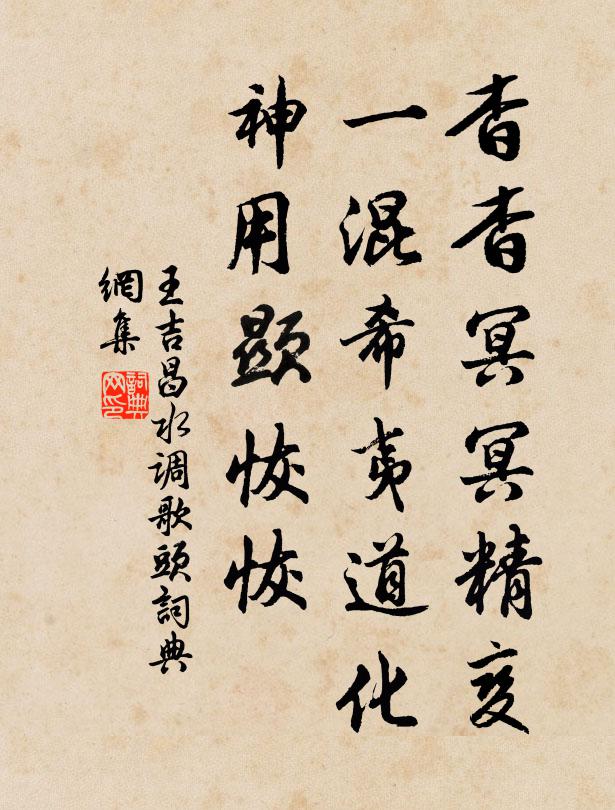 杳杳冥冥精变
一混希夷道化
神用顕恢恢
王吉昌水调歌頭詞典
網集
詞典
网印